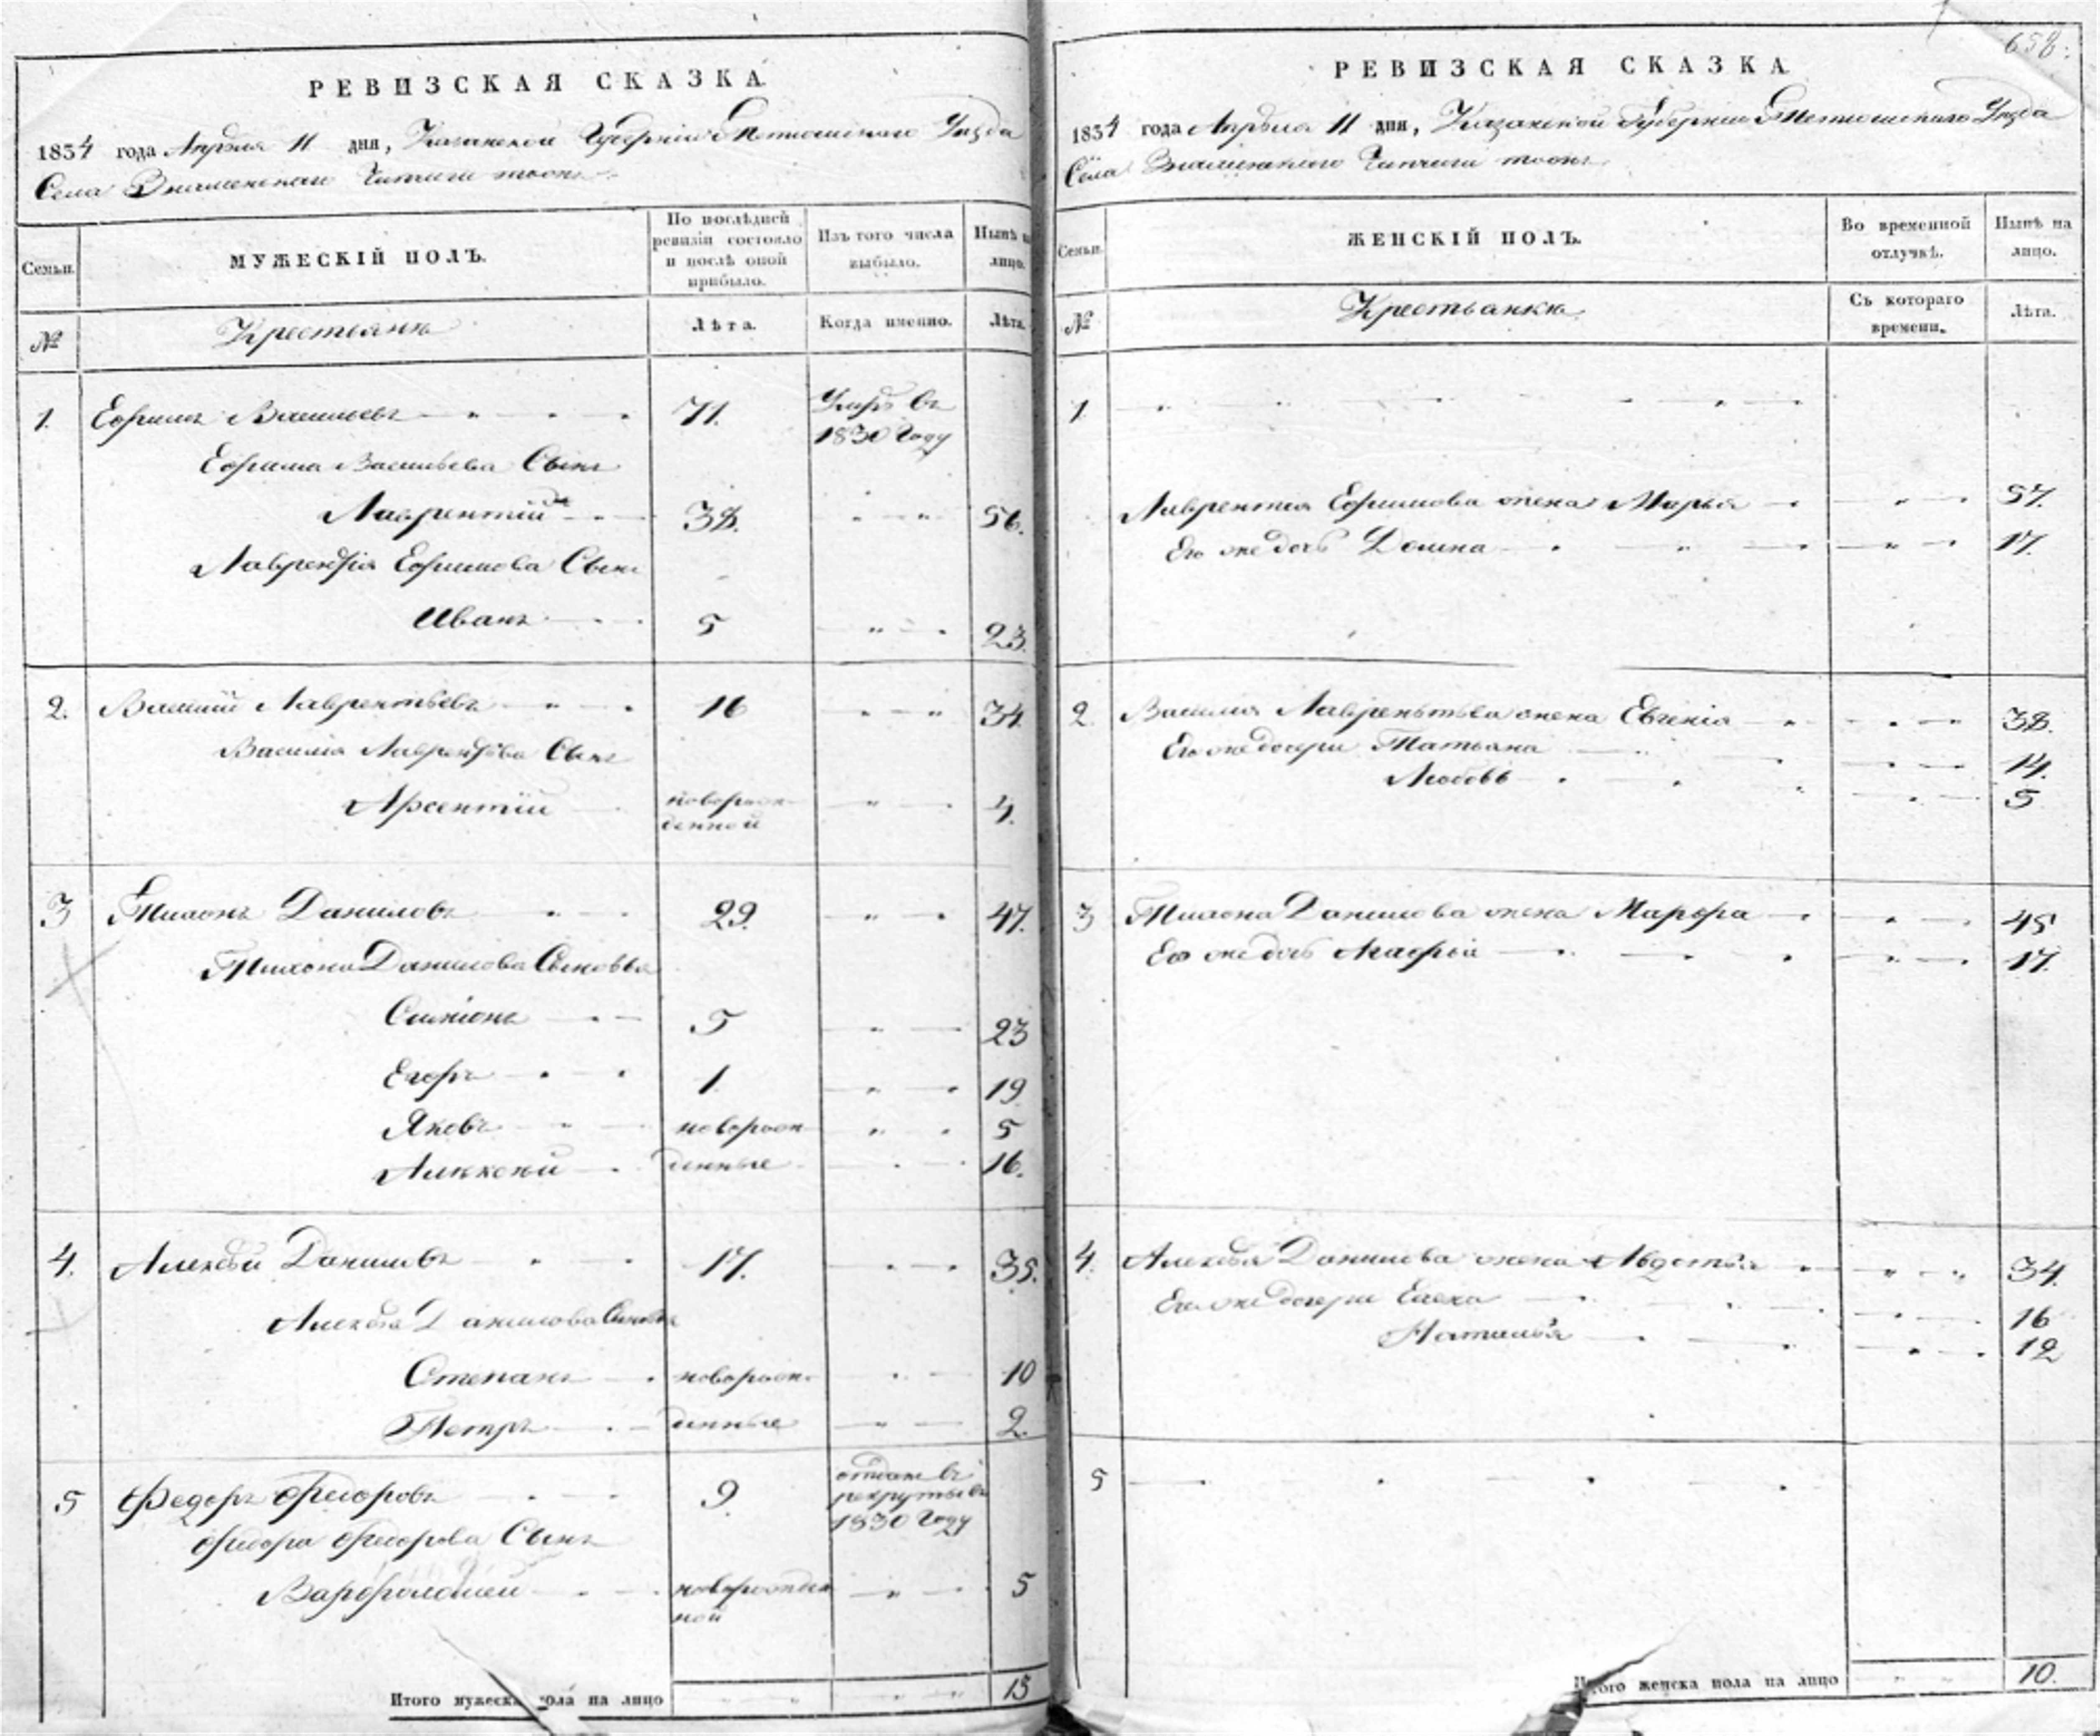 РЕВИЗСКАЯ СКАЗКА
1834 года Апреля 11 дня, Казанской Губернии Тетюшскаго Уезда
Села Знаменскаго тожъ
Семьи.
МУЖЕСКІЙ ПОЛЪ.
По послѣдней ревизіи состояло и послѣ оной прибыло.
Изъ того числа выбыло.
Нынѣ на лицо.
№
Крестьяне
Лѣта.
Когда именно.
Лѣта.
1. Ефимъ Васильевъ 71. Умре въ 1830 Году
Ефима Васильева Сынъ
Лаврентій 38. 56.
Лаврентія Ефимова Сынъ
Иванъ 5 23.
2. Василій Лаврентьевъ 16 34
Василія Лаврентьева Сынъ
Арсентій новорож-денной 4.
3 Тихонъ Даниловъ 29. 47.
Тихона Данилова Сыновья
Симіонъ 5 23
Егоръ 1 19
Яковъ новорож- 5
Алексѣй денные 16.
4. Алексѣй Даниловъ 17. 35.
Алексѣя Данилова Сыновья
Степанъ новорож- 10
Петръ денные 2.
5 Федоръ Федоровъ 9. отданъ въ рекруты въ 1830 Году
Федора Федорова Сынъ
Варфоломей новорожден ной 5
Итого мужеска пола на лицо 15
658.
РЕВИЗСКАЯ СКАЗКА
1834 года Апреля 11 дня, Казанской Губернии Тетюшскаго Уезда
Села Знаменскаго тожъ
Семьи.
ЖЕНСКІЙ ПОЛЪ.
Во временной отлучкѣ.
Нынѣ на лицо.
№
Крестьянки
Съ котораго времени.
Лѣта.
1
Лаврентія Ефимова жена Марья 57.
Его же дочь Домна 17.
2 Василія Лаврентьева жена Евгенія 38.
Его же дочери Татьяна 14.
Любовь 5
3 Тихона Данилова жена Марфа 45
Его же дочь 17.
4. Алексѣя Данилова жена Авдотья 34.
Его же дочери Елена 16
Наталья 12
5
Итого женска пола на лицо 10.